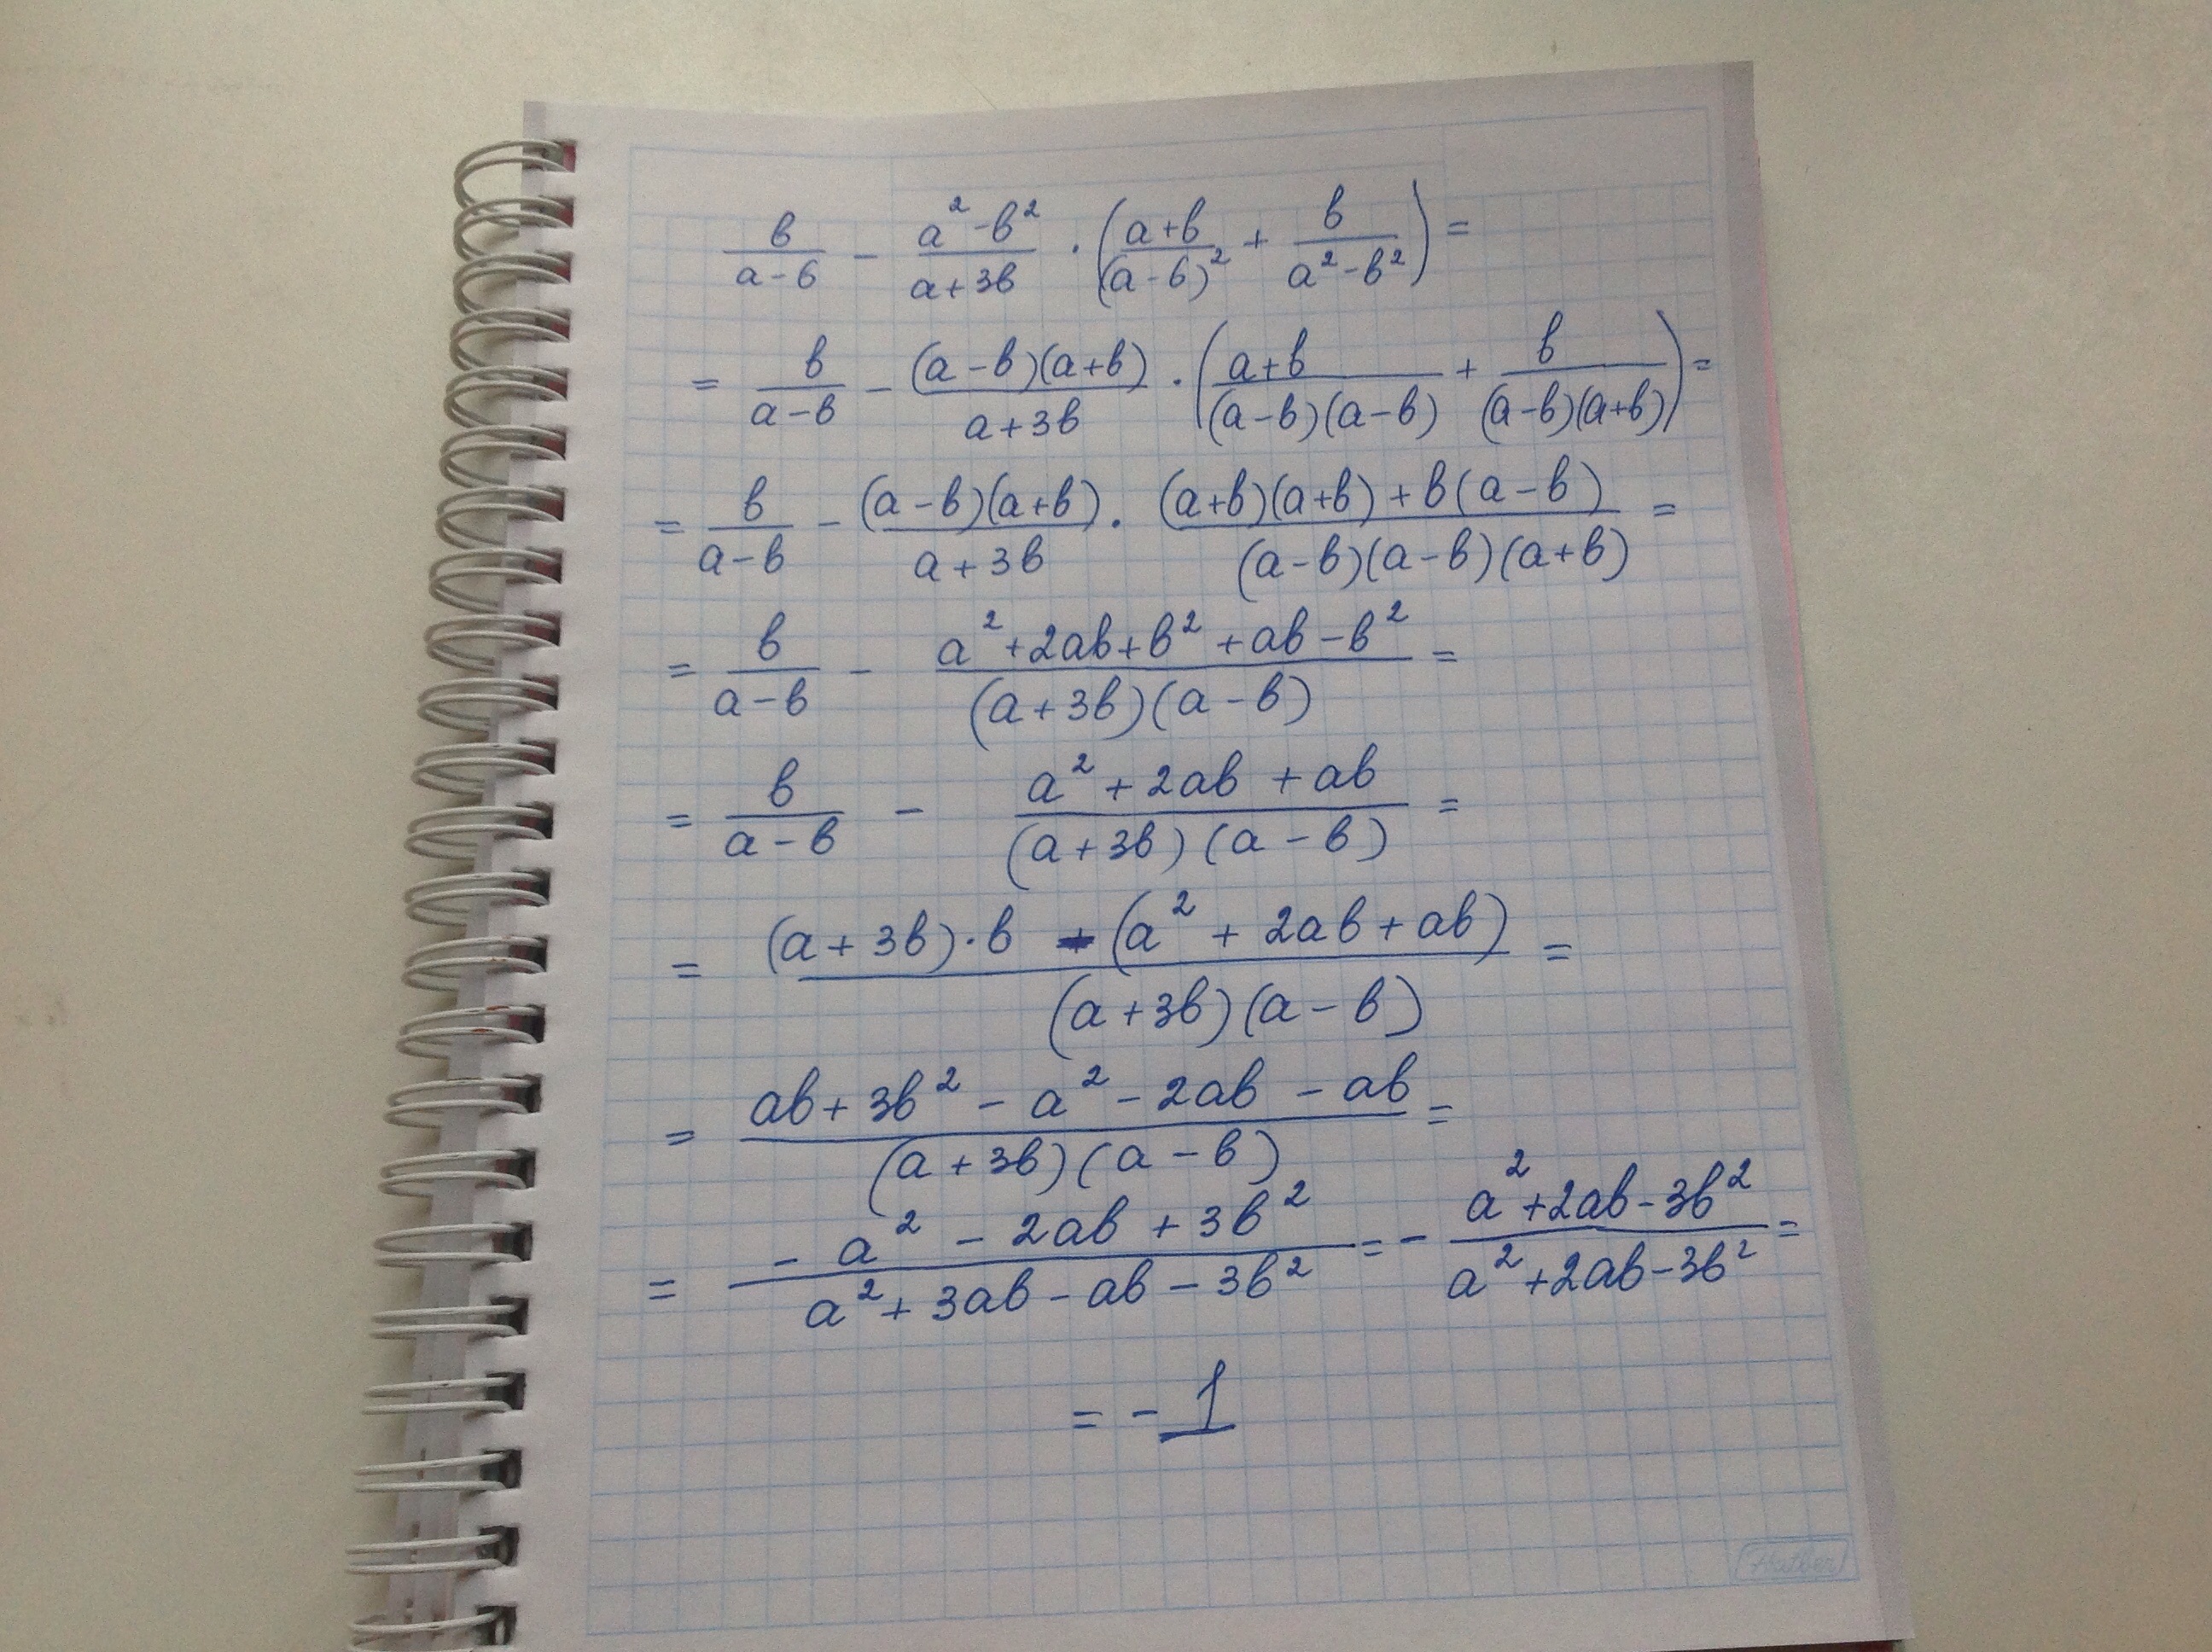 b/(a-b) - (a²-b²)/(a+3b) · ((a+b)/(a-b)² + b/(a²-b²)) =
= b/(a-b) - (a-b)(a+b)/(a+3b) · ((a+b)/((a-b)(a-b)) + b/((a-b)(a+b))) =
= b/(a-b) - (a-b)(a+b)/(a+3b) · ((a+b)(a+b)+b(a-b))/((a-b)(a-b)(a+b)) =
= b/(a-b) - (a²+2ab+b²+ab-b²)/((a+3b)(a-b)) =
= b/(a-b) - (a²+2ab+ab)/((a+3b)(a-b)) =
= ((a+3b)·b - (a²+2ab+ab))/((a+3b)(a-b)) =
= (ab+3b²-a²-2ab-ab)/((a+3b)(a-b)) =
= (-a²-2ab+3b²)/(a²+3ab-ab-3b²) = - (a²+2ab-3b²)/(a²+2ab-3b²) =
= -1
Hatber